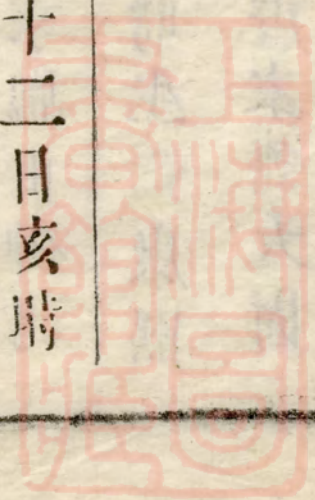 十二日亥時
上海圖
書館藏